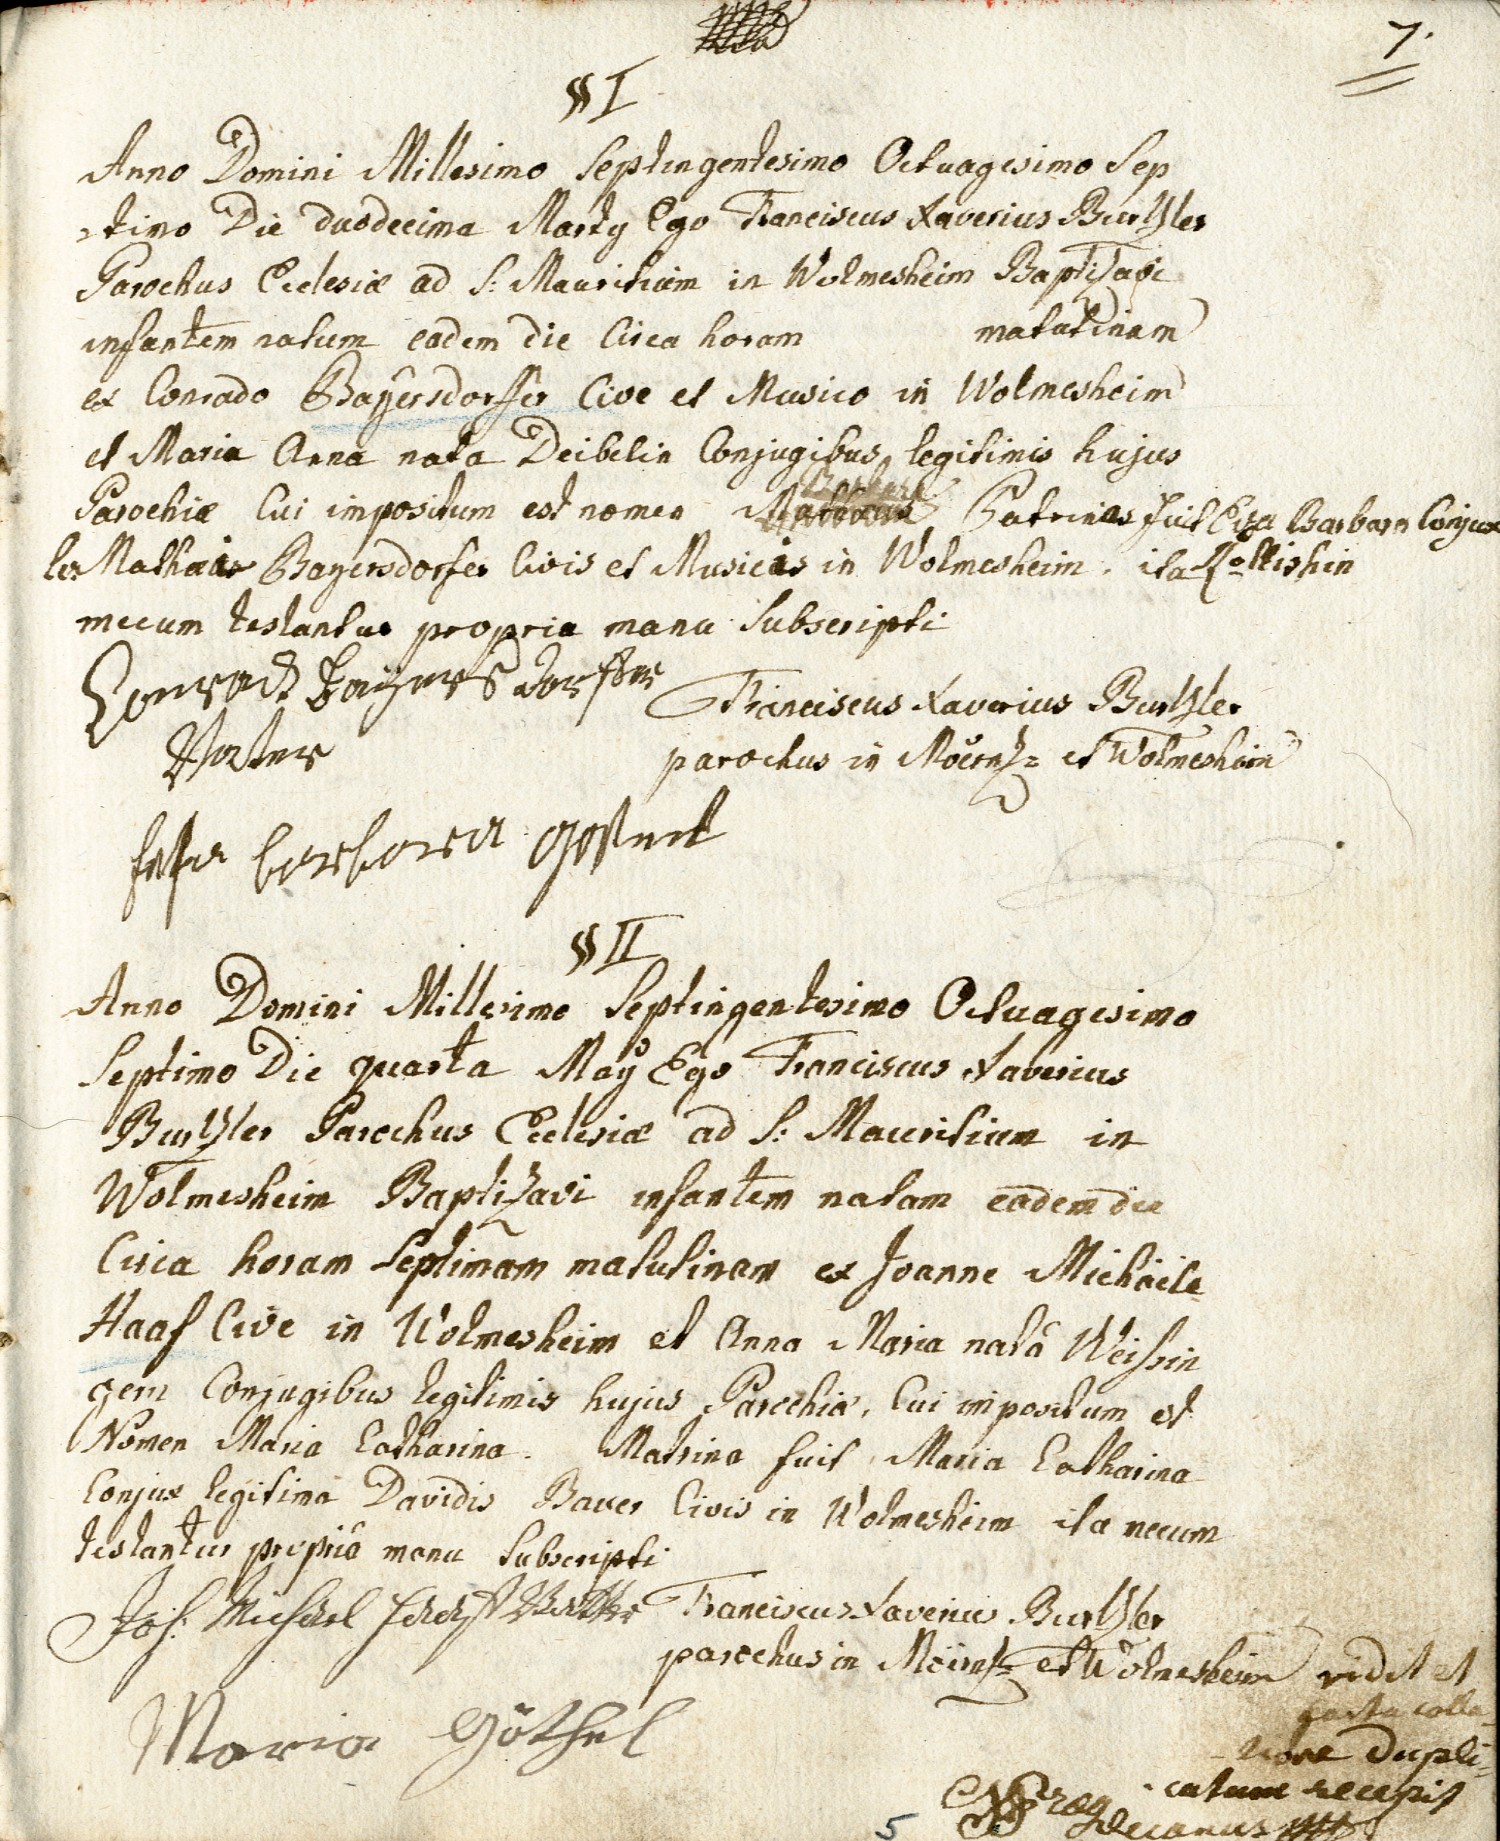 7.
§§ I
Anno Domini Millesimo Septingentesimo Octuagesimo Sep
timo Die duodecima Marty Ego Franciscus Xaverius Burtzler
Parochus Ecclesiæ ad S: Mauritium in Wolmesheim Baptizavi
infantem natum eadem die Circa horam matutinam
ex Conrado Baÿersdorffer Cive et Musico in Wolmesheim
et Maria Anna nata Deibelin Conjugibus legitimis hujus
Parochiæ Cui impositum est nomen Patrinus fuit Eva Barbara Conjux
Bayersdorfer Civis et Musicis in Wolmesheim. ita
mecum testantur propria manu Subscripti
Conrad Baÿersdorffer
Vatter
Franciscus Xaverius Burtzler
parochus in Möerz= et Wolmesheim
barbara
§§ II
Anno Domini Millesimo Septingentesimo Octuagesimo
Septimo Die quarta Maÿ Ego Franciscus Xaverius
Burtzler Parochus Ecclesiæ ad S: Mauritium in
Wolmesheim Baptizavi infantem natam eadem die
Circa horam Septimam matutinam ex Joanne Michäele
Haaf Cive in Wolmesheim et Anna Maria natâ Weissin
gern Conjugibus legitimis hujus Parochiæ, Cui impositum est
Nomen Maria Catharina. Matrina fuit Maria Catharina
Conjux legitima Davidis Bauer Civis in Wolmesheim ita mecum
testantur propriâ manu Subscripti
Joh: Michäel Haaf Vatter
Franciscus Xaverius Burtzler
parochus in Möirz= et Wolmesheim
Maria Göthel
vidit et
facta colla-
tione Dupli-
catum recepit
Decanus
5